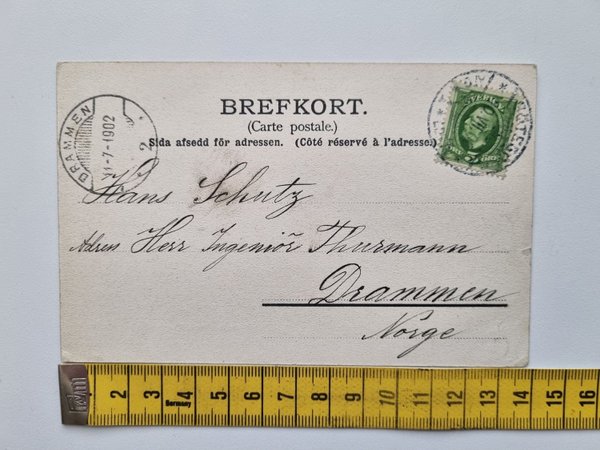 BREFKORT.
(Carte postale.)
Sida afsedd för adressen. (Côté réservé à l'adresse.)
DRAMMEN
11-7-1902
2
SVERIGE
5 ÖRE
Hans Schutz
Adress Herr Ingeniör Thurmann
Drammen
Norge
1 2 3 4 5 6 7 8 9 10 11 12 13 14 15 16
Germany